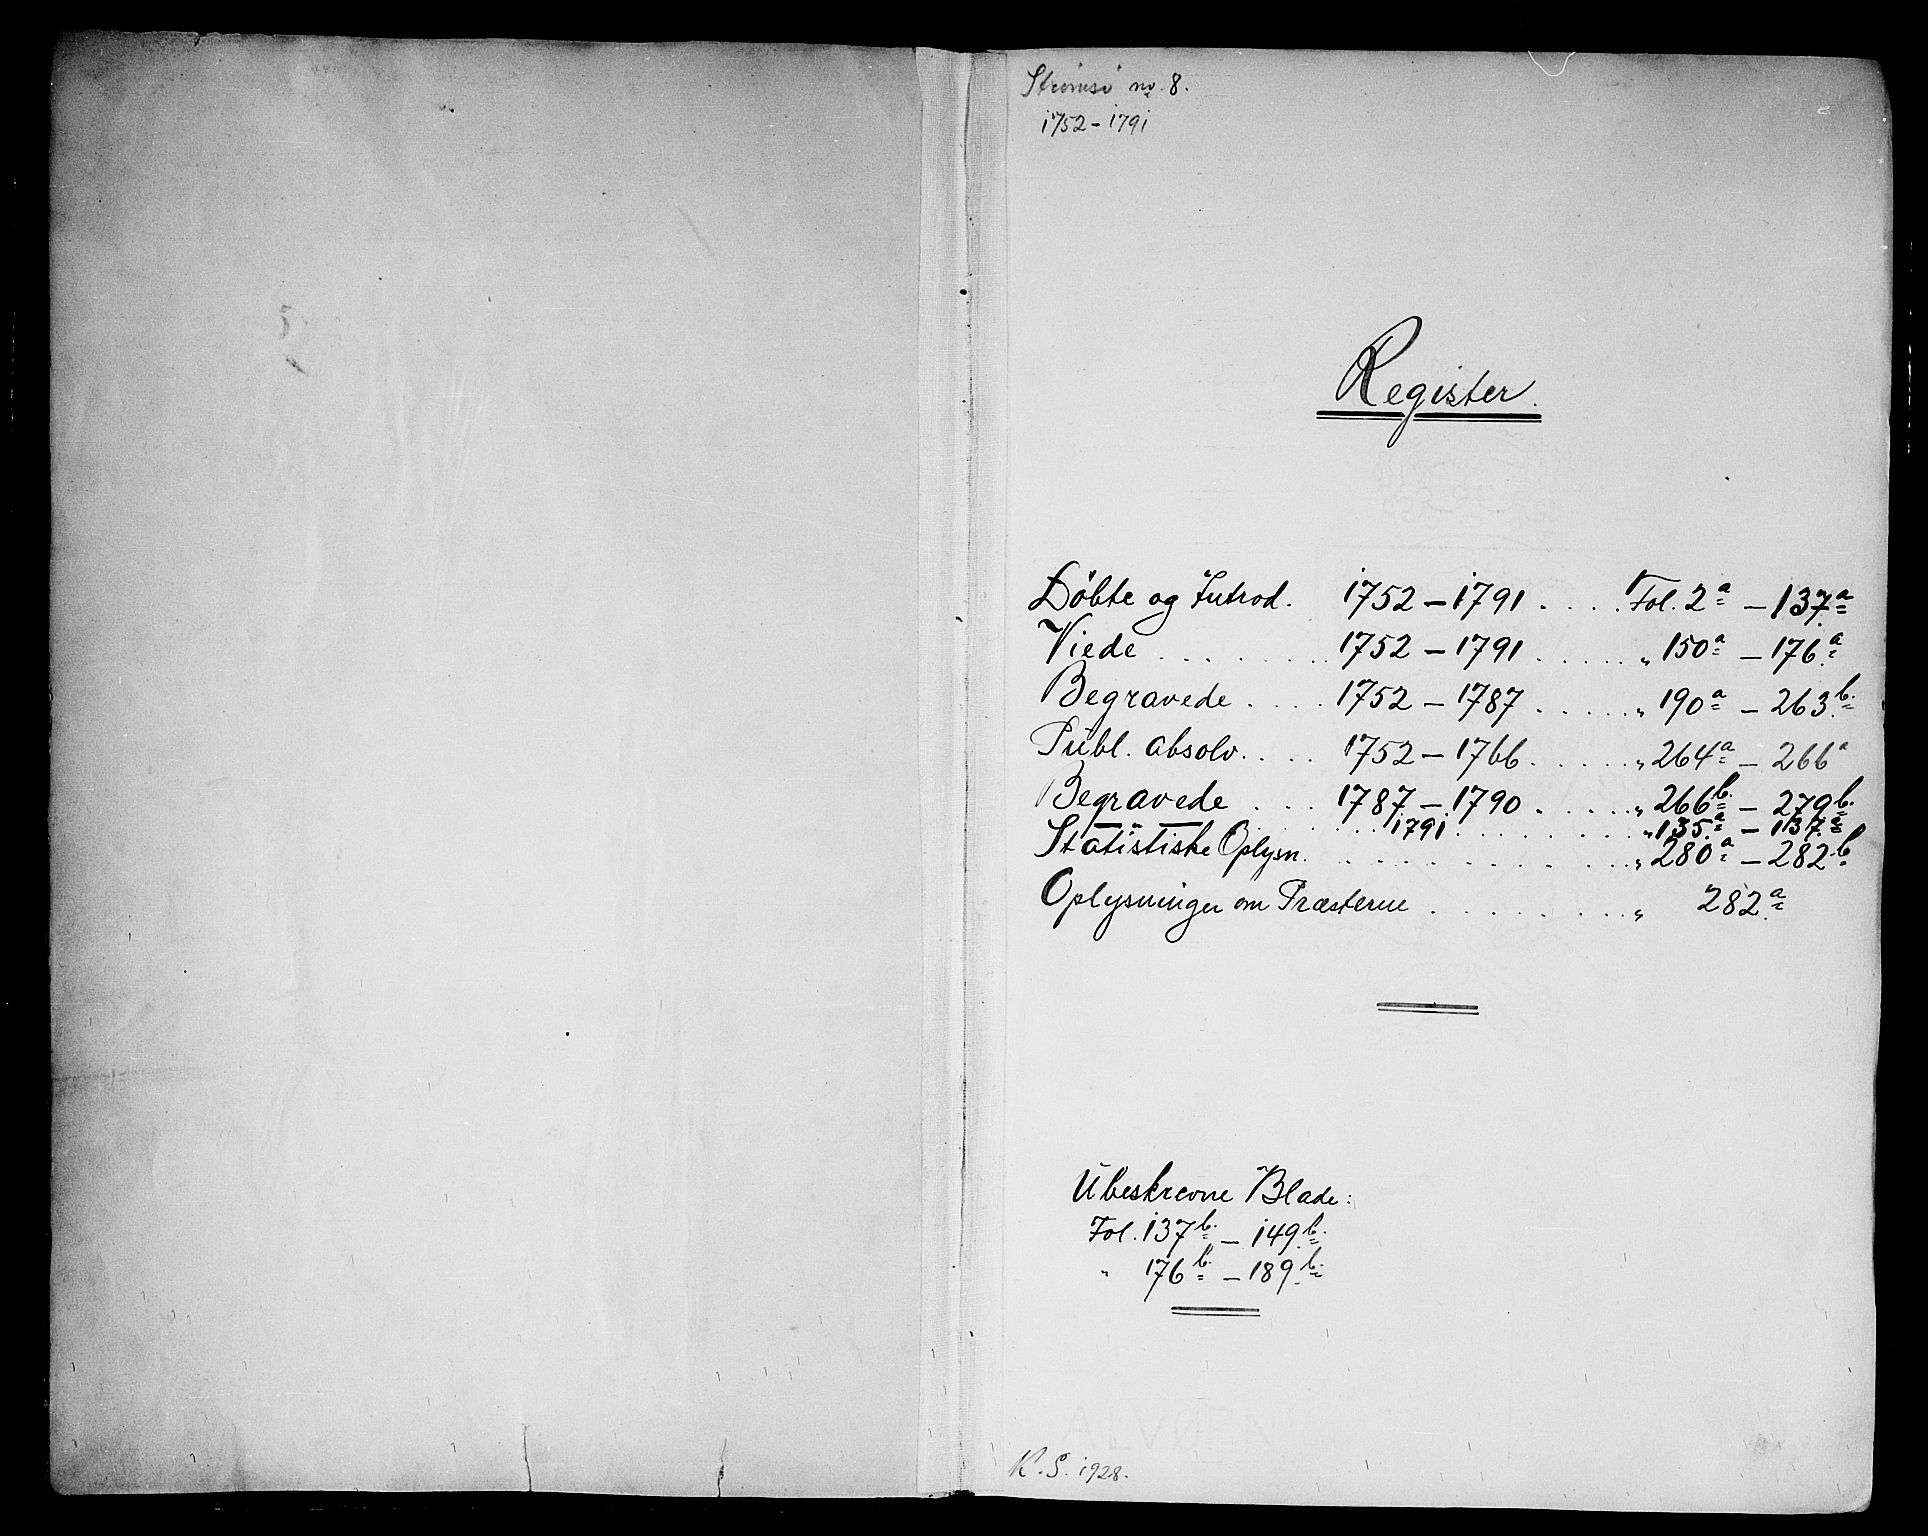 Strömsö no. 8.
1752-1791
Register.
Döbte og Introd. 1752-1791 . . . . Fol. 2a - 137a
Viede . . . . . . 1752-1791 . . . . . " 150a - 176a
Begravede . . . . 1752-1787 . . . . . " 190a - 263b.
Publ. absolv. . . . 1752-1766 . . . . . " 264a - 266a
Begravede . . . 1787-1790 . . . . . " 266b. - 279b.
— " — . . . . 1791 . . . . . . . . " 135a - 137a
Statistiske Oplysn. . . . . . . . . . . " 280a - 282b
Oplysninger om Præsterne . . . . . . . . " 282a
Ubeskrevne Blade:
Fol. 137b. - 149b.
" 176b. - 189b.
ALVØEN
K. S. 1928.